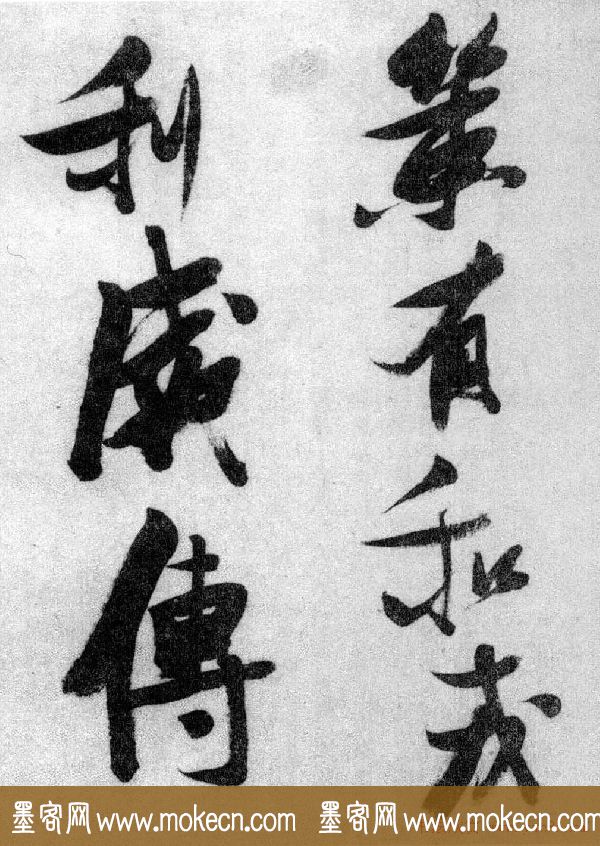 業有和戎
利威傳
墨客网 www.mokecn.com 墨客网 www.mokecn.com